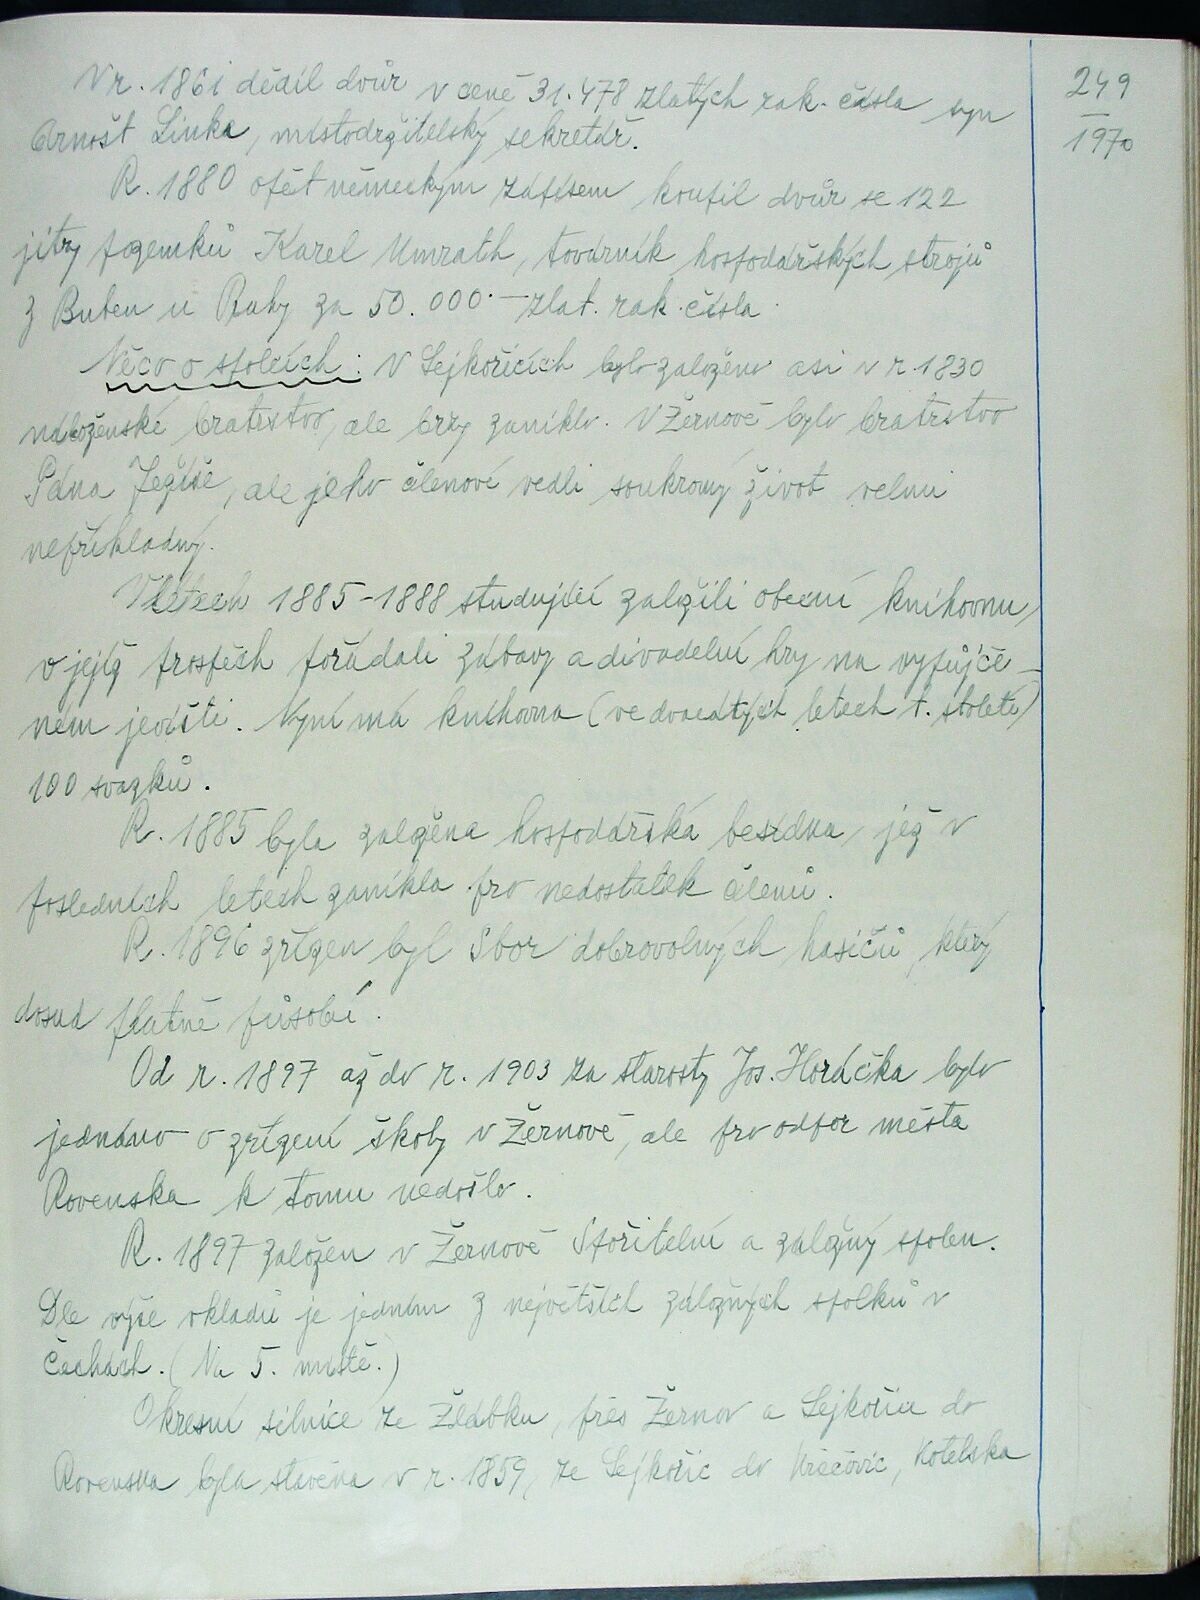 249
1970
V r. 1861 dědil dvůr v ceně 31.478 zlatých rak. čísla syn
Arnošt Linka, místodržitelský sekretář.
R. 1880 opět německým zápisem koupil dvůr se 122
jitry pozemků Karel Umrath, továrník hospodářských strojů
z Buben u Prahy za 50.000.— zlat. rak. čísla.
Něco o spolcích: V Sejkořicích bylo založeno asi v r. 1830
náboženské bratrstvo, ale brzy zaniklo. V Žernově bylo bratrstvo
Pána Ježíše, ale jeho členové vedli soukromý život velmi
nepříkladný.
V létech 1885-1888 studující založili obecní knihovnu,
v jejíž prospěch pořádali zábavy a divadelní hry na vypůjče-
ném jevišti. Nyní má knihovna (ve dvacátých letech t. století)
100 svazků.
R. 1885 byla založena hospodářská besídka, jež v
posledních letech zanikla pro nedostatek členů.
R. 1896 zřízen byl Sbor dobrovolných hasičů, který
dosud platně působí.
Od r. 1897 až do r. 1903 za starosty Jos. Horáčka bylo
jednáno o zřízení školy v Žernově, ale pro odpor města
Rovenska k tomu nedošlo.
R. 1897 založen v Žernově Spořitelní a záložný spolek.
Dle výše vkladů je jedním z největších záložných spolků v
Čechách. (Na 5. místě.)
Okresní silnice ze Žlábku, přes Žernov a Sejkořice do
Rovenska byla stavěna v r. 1859, ze Sejkořic do Křečovic, Kotelska